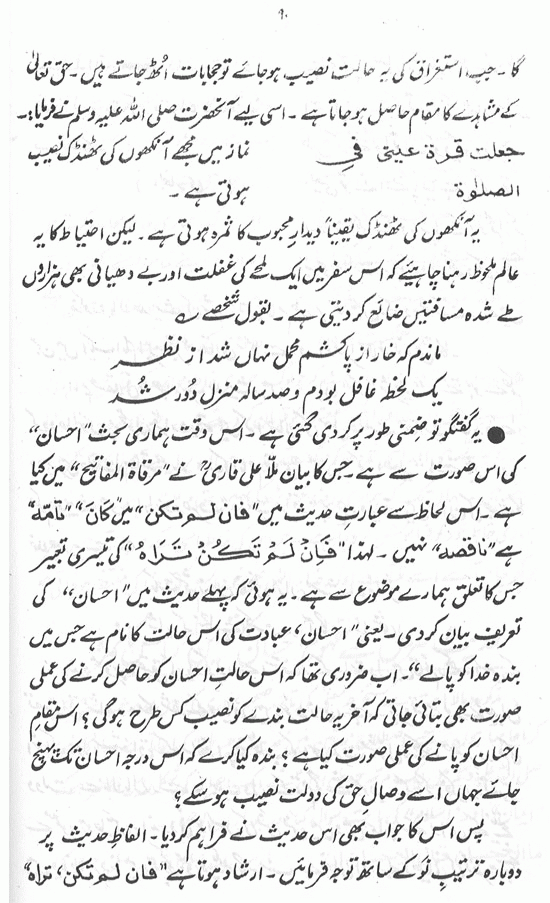 ۹۰
گا ۔ جب استغراق کی یہ حالت نصیب ہو جائے تو حجابات اُٹھ جاتے ہیں ۔ حق تعالیٰ
کے مشاہدے کا مقام حاصل ہو جاتا ہے ۔ اسی لیے آنحضرت صلی اللہ علیہ وسلم نے فرمایا :۔
جعلت قرة عینی فی نماز میں مجھے آنکھوں کی ٹھنڈک نصیب
الصلوٰة ہوتی ہے ۔
یہ آنکھوں کی ٹھنڈک یقیناً دیدارِ محبوب کا ثمرہ ہوتی ہے ۔ لیکن احتیاط کا یہ
عالم ملحوظ رہنا چاہیئے کہ اس سفر میں ایک لمحے کی غفلت اور بے دھیانی بھی ہزاروں
طے شدہ مسافتیں ضائع کر دیتی ہے ۔ بقول شخصے
ماندم کہ خار از پا کشم محمل نہاں شد از نظر
یک لحظہ غافل بودم و صد سالہ منزل دُور شُد
● یہ گفتگو تو ضمنی طور پر کر دی گئی ہے ۔ اس وقت ہماری بحث "احسان"
کی اس صورت سے ہے ۔ جس کا بیان ملّا علی قاریؒ نے "مرقاة المفاتیح" میں کیا
ہے ۔ اس لحاظ سے عبارتِ حدیث میں "فان لم تکن" میں کَانَ "تامّه"
ہے "ناقصه" نہیں ۔ لہٰذا "فَاِنْ لَمْ تَکُنْ تَرَاهُ" کی تیسری تعبیر
جس کا تعلق ہمارے موضوع سے ہے ۔ یہ ہوئی کہ پہلے حدیث میں "احسان" کی
تعریف بیان کر دی ۔ یعنی "احسان، عبادت کی اس حالت کا نام ہے جس میں
بندہ خدا کو پا لے" ۔ اب ضروری تھا کہ اس حالتِ احسان کو حاصل کرنے کی عملی
صورت بھی بتائی جاتی کہ آخر یہ حالت بندے کو نصیب کس طرح ہو گی ؟ اس مقامِ
احسان کو پانے کی عملی صورت کیا ہے ؟ بندہ کیا کرے کہ اس درجہ احسان تک پہنچ
جائے جہاں اسے وصالِ حق کی دولت نصیب ہو سکے ؟
پس اس کا جواب بھی اس حدیث نے فراہم کر دیا ۔ الفاظِ حدیث پر
دوبارہ ترتیبِ نَو کے ساتھ توجہ فرمائیں ۔ ارشاد ہوتا ہے "فان لم تکن، تراه"